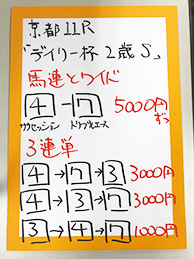 京都11R
「デイリー杯2歳S」
馬連とワイド
4-7 5000円ずつ
サクセッション ドリブルエース
3連単
4→7→3 3000円
4→3→7 3000円
3→4→7 1000円